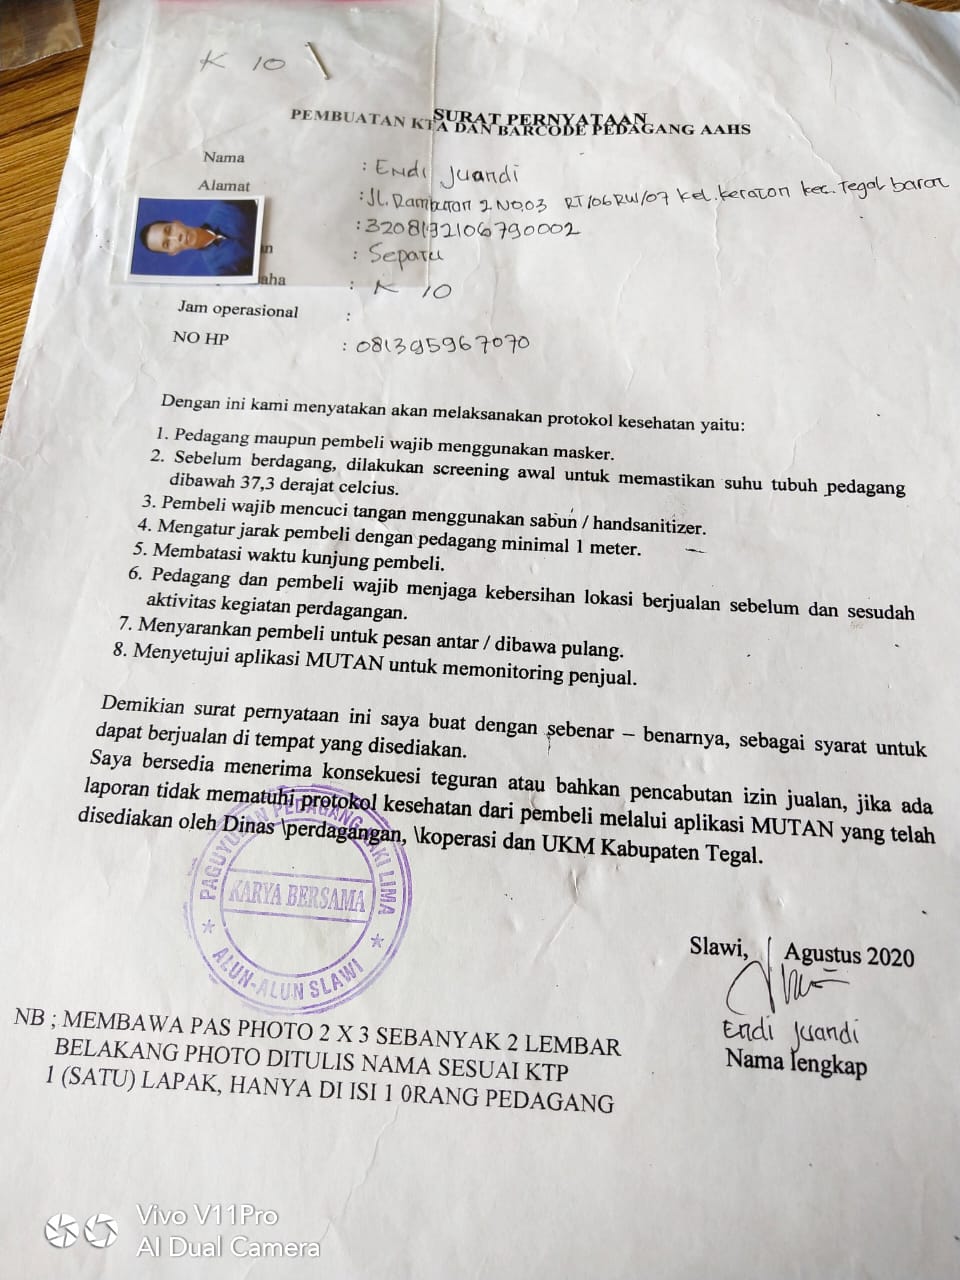 K 10
SURAT PERNYATAAN
PEMBUATAN KTA DAN BARCODE PEDAGANG AAHS
Nama : Endi Juandi
Alamat : Jl. Rambutan 2 No.03 RT/06 RW/07 Kel. Keraton Kec. Tegal barat
: 3208192106790002
an : Sepatu
aha : K 10
Jam operasional :
NO HP : 081395967070
Dengan ini kami menyatakan akan melaksanakan protokol kesehatan yaitu:
1. Pedagang maupun pembeli wajib menggunakan masker.
2. Sebelum berdagang, dilakukan screening awal untuk memastikan suhu tubuh pedagang
dibawah 37,3 derajat celcius.
3. Pembeli wajib mencuci tangan menggunakan sabun / handsanitizer.
4. Mengatur jarak pembeli dengan pedagang minimal 1 meter.
5. Membatasi waktu kunjung pembeli.
6. Pedagang dan pembeli wajib menjaga kebersihan lokasi berjualan sebelum dan sesudah
aktivitas kegiatan perdagangan.
7. Menyarankan pembeli untuk pesan antar / dibawa pulang.
8. Menyetujui aplikasi MUTAN untuk memonitoring penjual.
Demikian surat pernyataan ini saya buat dengan sebenar – benarnya, sebagai syarat untuk
dapat berjualan di tempat yang disediakan.
Saya bersedia menerima konsekuesi teguran atau bahkan pencabutan izin jualan, jika ada
laporan tidak mematuhi protokol kesehatan dari pembeli melalui aplikasi MUTAN yang telah
disediakan oleh Dinas \perdagangan, \koperasi dan UKM Kabupaten Tegal.
PAGUYUBAN PEDAGANG KAKI LIMA
KARYA BERSAMA
ALUN-ALUN SLAWI
Slawi, Agustus 2020
Endi Juandi
Nama lengkap
NB ; MEMBAWA PAS PHOTO 2 X 3 SEBANYAK 2 LEMBAR
BELAKANG PHOTO DITULIS NAMA SESUAI KTP
1 (SATU) LAPAK, HANYA DI ISI 1 0RANG PEDAGANG
Vivo V11Pro
AI Dual Camera